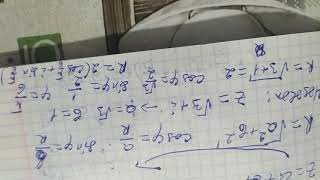 z=a+bi
R=√a²+b² cosφ=a/R ; sinφ=b/R
z=√3+i → a=√3 b=1
R=√3+1=2 cosφ √3/2 sinφ=1/2 φ=π/6
R=2(cos π/6 + i sin π/6)